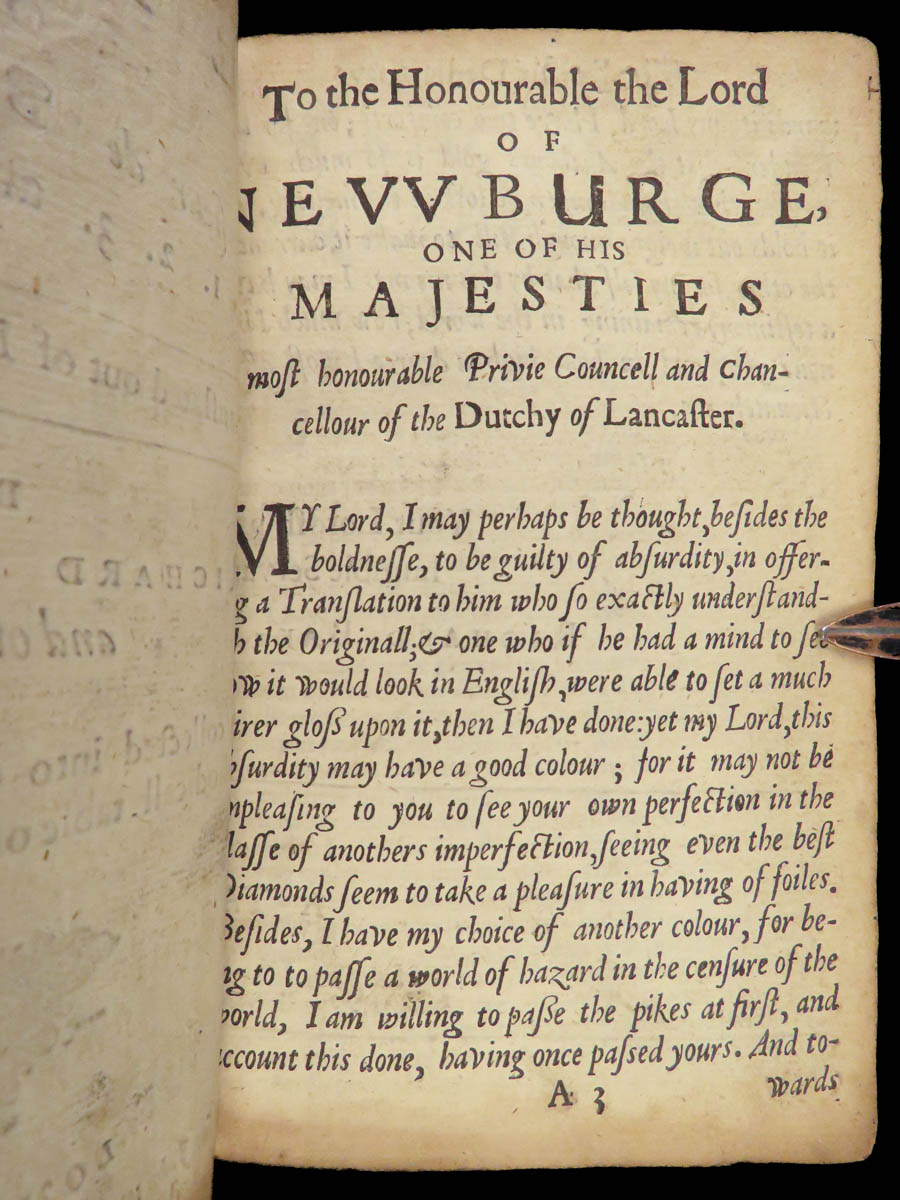 To the Honourable the Lord
OF
NEVVBURGE,
ONE OF HIS
MAJESTIES
most honourable Privie Councell and Chan-
cellour of the Dutchy of Lancaſter.
MY Lord, I may perhaps be thought, beſides the
boldneſſe, to be guilty of abſurdity, in offer-
g a Tranſlation to him who ſo exactly underſtand-
h the Originall; & one who if he had a mind to ſee
ow it would look in Engliſh, were able to ſet a much
irer gloſs upon it, then I have done: yet my Lord, this
bſurdity may have a good colour; for it may not be
npleaſing to you to ſee your own perfection in the
laſſe of anothers imperfection, ſeeing even the beſt
Diamonds ſeem to take a pleaſure in having of foiles.
Beſides, I have my choice of another colour, for be-
ng to to paſſe a world of hazard in the cenſure of the
orld, I am willing to paſse the pikes at firſt, and
ccount this done, having once paſsed yours. And to-
A 3
wards